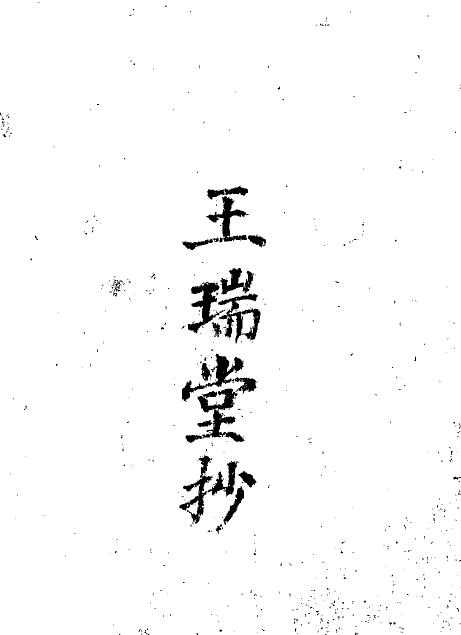 王瑞堂抄